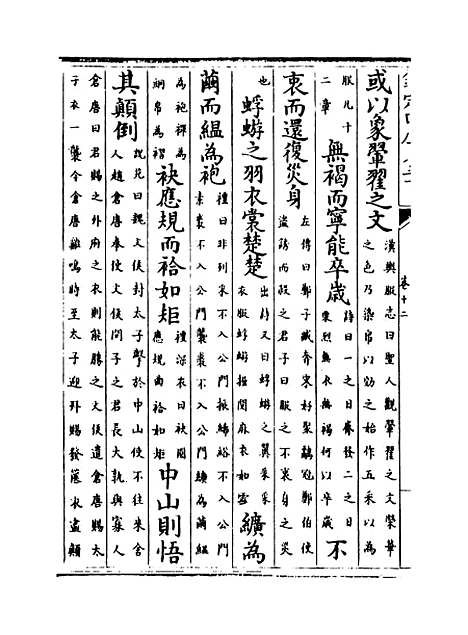 欽定四庫全書
卷十二
或以象翬翟之文漢輿服志曰聖人觀翬翟之文榮華
之色乃染帛以効之始作五采以為
服凡十
二章無褐而寧能卒歲詩曰一之日觱發二之日
栗烈無衣無褐何以卒歲不
衷而還復災身左傳曰鄭子臧奔宋好聚鷸冠鄭伯使
盜誘而殺之君子曰服之不衷身之災
也蜉蝣之羽衣裳楚楚出詩又曰蜉蝣之翼采采
衣服蜉蝣掘閱麻衣如雪纊為
繭而緼為袍禮曰非列采不入公門振絺綌不入公門
表裘不入公門襲裘不入公門纊為繭緼
為袍襌為
絅帛為褶袂應規而袷如矩禮深衣曰袂圓
應規曲袷如矩中山則悟
其顛倒說苑曰魏文侯封太子擊於中山使不往來舍
人趙倉唐奉使文侯問子之君長大孰與寡人
倉唐曰君賜之外府之衣則能勝之文侯遣倉唐賜太
子衣一襲令倉唐雞鳴時至太子迎拜賜發篋衣盡顛